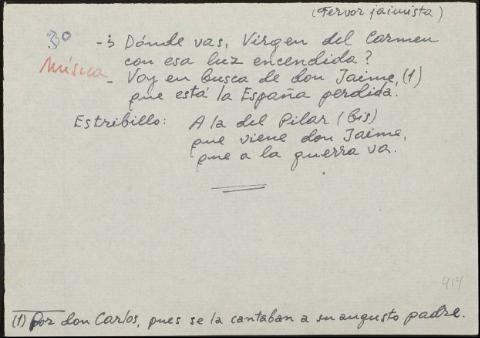 (Fervor jaimista)
3º -¿ Dónde vas, Virgen del Carmen
con esa luz encendida?
Música - Voy en busca de don Jaime, (1)
que está la España perdida.
Estribillo: A la del Pilar (bis)
que viene don Jaime,
que a la guerra va.
414
(1) Por don Carlos, pues se la cantaban a su augusto padre.